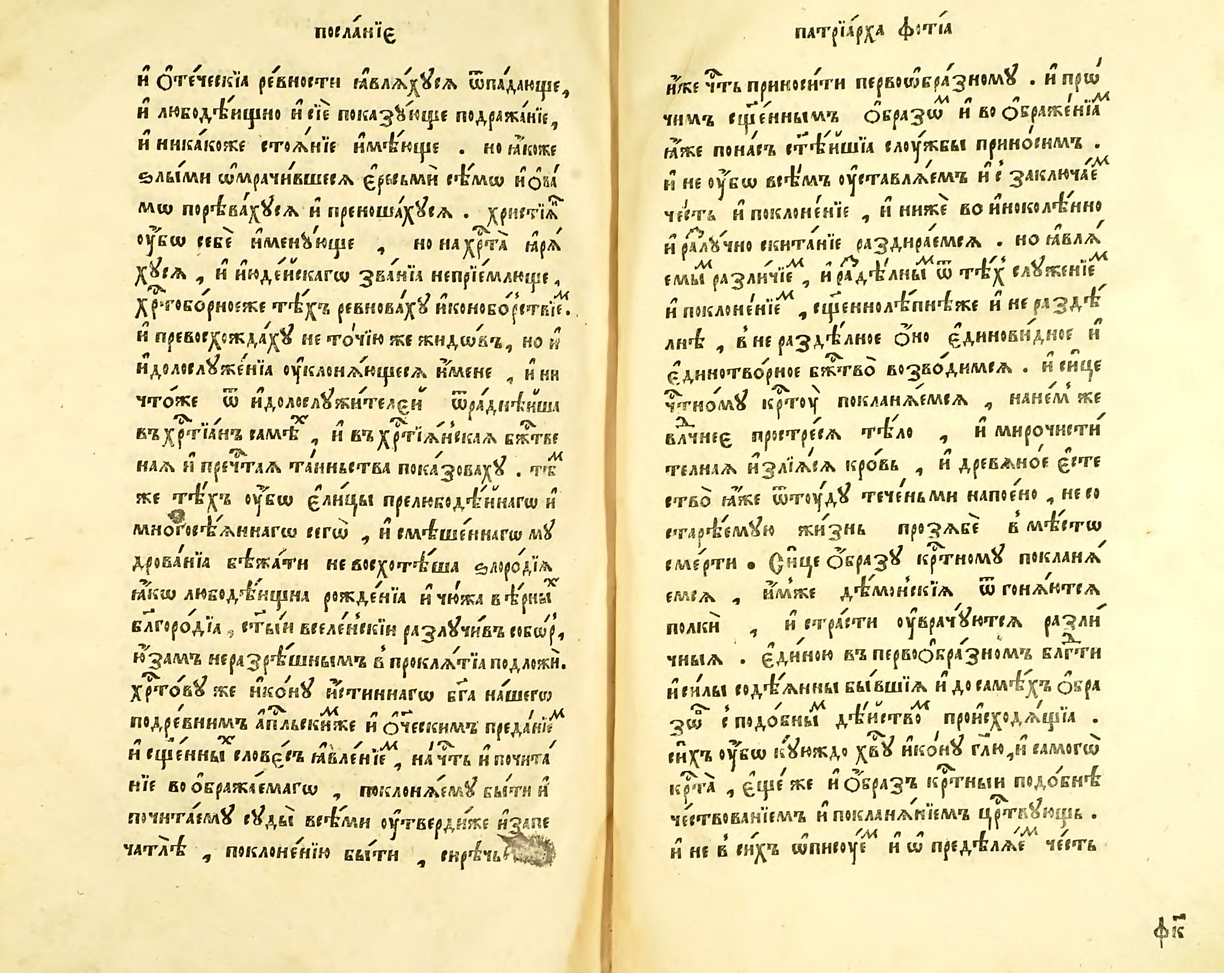 посла́нїе
и҆ ѻ҆те́ческїа ре́вности ꙗ҆влѧ́хꙋсѧ ѿпада́юще,
и҆ любодѣ́ищно и҆ сїѐ показꙋ́юще подража́нїе,
и҆ никако́же стоѧ́нїе и҆мѣ́юще . но ꙗ҆́коже
ѕлы́ми ѡ҆мрачи́вшесѧ є҆ресьмѝ сѣ́мѡ и҆ ѻ҆ва́
мѡ порѣва́хꙋсѧ и҆ преноша́хꙋсѧ . христїѧⷩ҇
ᲂу҆́бѡ себѐ и҆менꙋ́юще , но на хрⷭ҇та̀ ꙗ҆рѧ́
хꙋсѧ , и҆ и҆юде́йскагѡ зва́нїа непрїе́млюще ,
хрⷭ҇тобо́рноеже тѣ́хъ ревнова́хꙋ и҆конобо́рствїеⷨ.
и҆ превосхожда́хꙋ не то́чїю же жидѡ́въ, но и҆
и҆долослꙋже́нїа ᲂу҆клонѧ́ющесѧ и҆́мене , и҆ ни
что́же ѿ и҆долослꙋжи́телей ѿра́днѣйша
въ хрⷭ҇тїа́нъ самѣⷯ , и҆ въ хрⷭ҇тїѧ́нскаѧ бжⷭ҇тве
наѧ и҆ пречⷭ҇таѧ та́иньства показова́хꙋ . тѣⷨ
же тѣ́хъ ᲂу҆́бѡ є҆ли́цы прелюбодѣ́йнагѡ и҆
многосѣ́ѧннагѡ сегѡ̀ , и҆ смѣше́ннагѡ мꙋ
дрова́нїа бѣжа́ти не восхотѣ́ша ѕлоро́дїѧ
ꙗ҆́кѡ любодѣ́ищна рожде́нїа и҆ чю́жа вѣ́рныⷯ
бл҃горо́дїа , ст҃ы́и вселе́нскїи разлꙋчи́въ собѡ́р,
ю҆́замъ неразрѣ́шнымъ в проклѧ́тїа подложѝ.
хрⷭ҇то́вꙋ же и҆ко́нꙋ и҆́стиннагѡ бг҃а на́шегѡ
подре́внимъ а҆пⷭ҇льскиⷨже и҆ ѻ҆ч҃ескимъ преда́нїеⷨ
и҆ сщ҃е́нныⷯ слове́съ ꙗ҆вле́нїеⷨ , на чⷭ҇ть и҆ почита́
нїе воѻбража́емагѡ , поклонѧ́емꙋ бы́ти и҆
почита́емꙋ сꙋды̀ всѣ́ми ᲂу҆твердѝже и҆ запе
чатлѣ̀ , поклоне́нїю бы́ти , сирѣ́чь
патрїа́рха фо́тїа
и҆́же чⷭ҇ть приноси́ти первоѡбра́зномꙋ . и҆ прѡ́
чимъ сщ҃е́ннымъ ѻ҆́бразѡⷨ и҆ во ѻ҆браже́нїаⷨ
ꙗ҆́же пона́съ ст҃ѣ́йшїа слꙋ́жбы прино́симъ .
и҆ не ᲂу҆́бѡ всѣ́мъ ᲂу҆ставлѧ́емъ и҆ с заключа́еⷨ
че́сть и҆ поклоне́нїе , и҆ нижѐ во и҆ноколѣ́нно
и҆ разлꙋ́чно скита́нїе раздира́емсѧ . но ꙗ҆влѧ́
емыⷨ разли́чїеⷨ , и҆ разⷣѣ́лныⷨ ѿ тѣ́х слꙋже́нїеⷨ
и҆ поклоне́нїеⷨ , сщ҃еннолѣ́пнѣже и҆ не раздѣ́
лнѣ , в не раздѣ́лное ѻ҆́но є҆динови́дное и҆
є҆динотво́рное бжⷭ҇тво̀ возво́димсѧ . и҆ си́це
чⷭ҇тномꙋ крⷭ҇тꙋ̀ покланѧ́емсѧ , на не́м же
влⷣчнее простре́сѧ тѣ́ло , и҆ мирочисти́
телнаѧ и҆злїѧ́сѧ кро́вь , и҆ древѧно́е є҆сте
ство̀ ꙗ҆́же ѿтꙋ́дꙋ тече́ньми напое́но , не со
старѣ́емꙋю жи́знь прозѧбѐ в мѣ́стѡ
сме́рти . Си́це ѻ҆́бразꙋ крⷭ҇тномꙋ покланѧ́
емсѧ , и҆́мже дѣ́монскїѧ ѿ гонѧ́ютсѧ
полкѝ , и҆ стра́сти ᲂу҆врачꙋ́ютсѧ разли́
чныѧ . є҆ди́ною въ первоѻбра́зномъ блгⷣти
и҆ си́лы содѣ́ѧнны бы́вшїѧ и҆ до самѣ́хъ ѻ҆бра
зѡⷡ҇ с подо́бныⷨ дѣ́йствоⷨ происходѧ́щїа .
си́хъ ᲂу҆́бѡ кꙋ́юждо хв҃ꙋ и҆ко́нꙋ гл҃ю, и҆ самогѡ̀
крⷭ҇та̀ , є҆ще́ же и҆ ѻ҆́бразъ крⷭ҇тныи подо́бнѣ
че́ствованїемъ и҆ покланѧ́нїемъ црⷭ҇твꙋ́ющь .
и҆ не в си́хъ ѡ҆писꙋ́еⷨ и҆ ѡ҆ предѣлѧ́еⷨ че́сть
фк҃